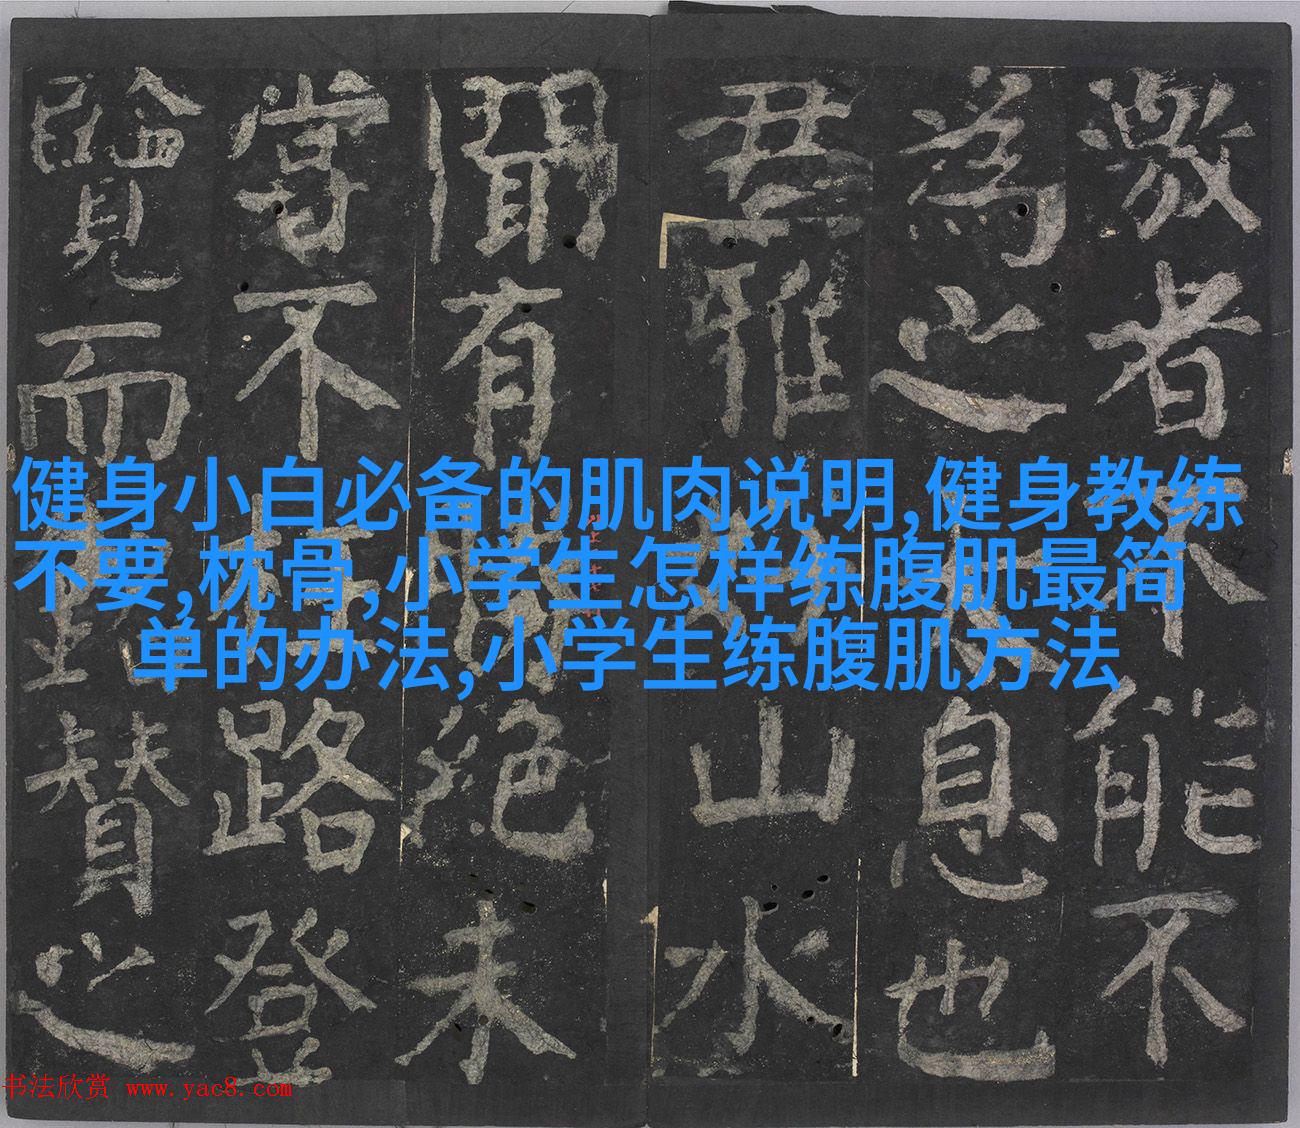 激者不能不
為之息也
君雅山水
聞有絕未
嘗不枉路登
覽而贊之
健身小白必备的肌肉说明,健身教练
不要,枕骨,小学生怎样练腹肌最简
单的办法,小学生练腹肌方法
书法欣赏 www.yac8.com